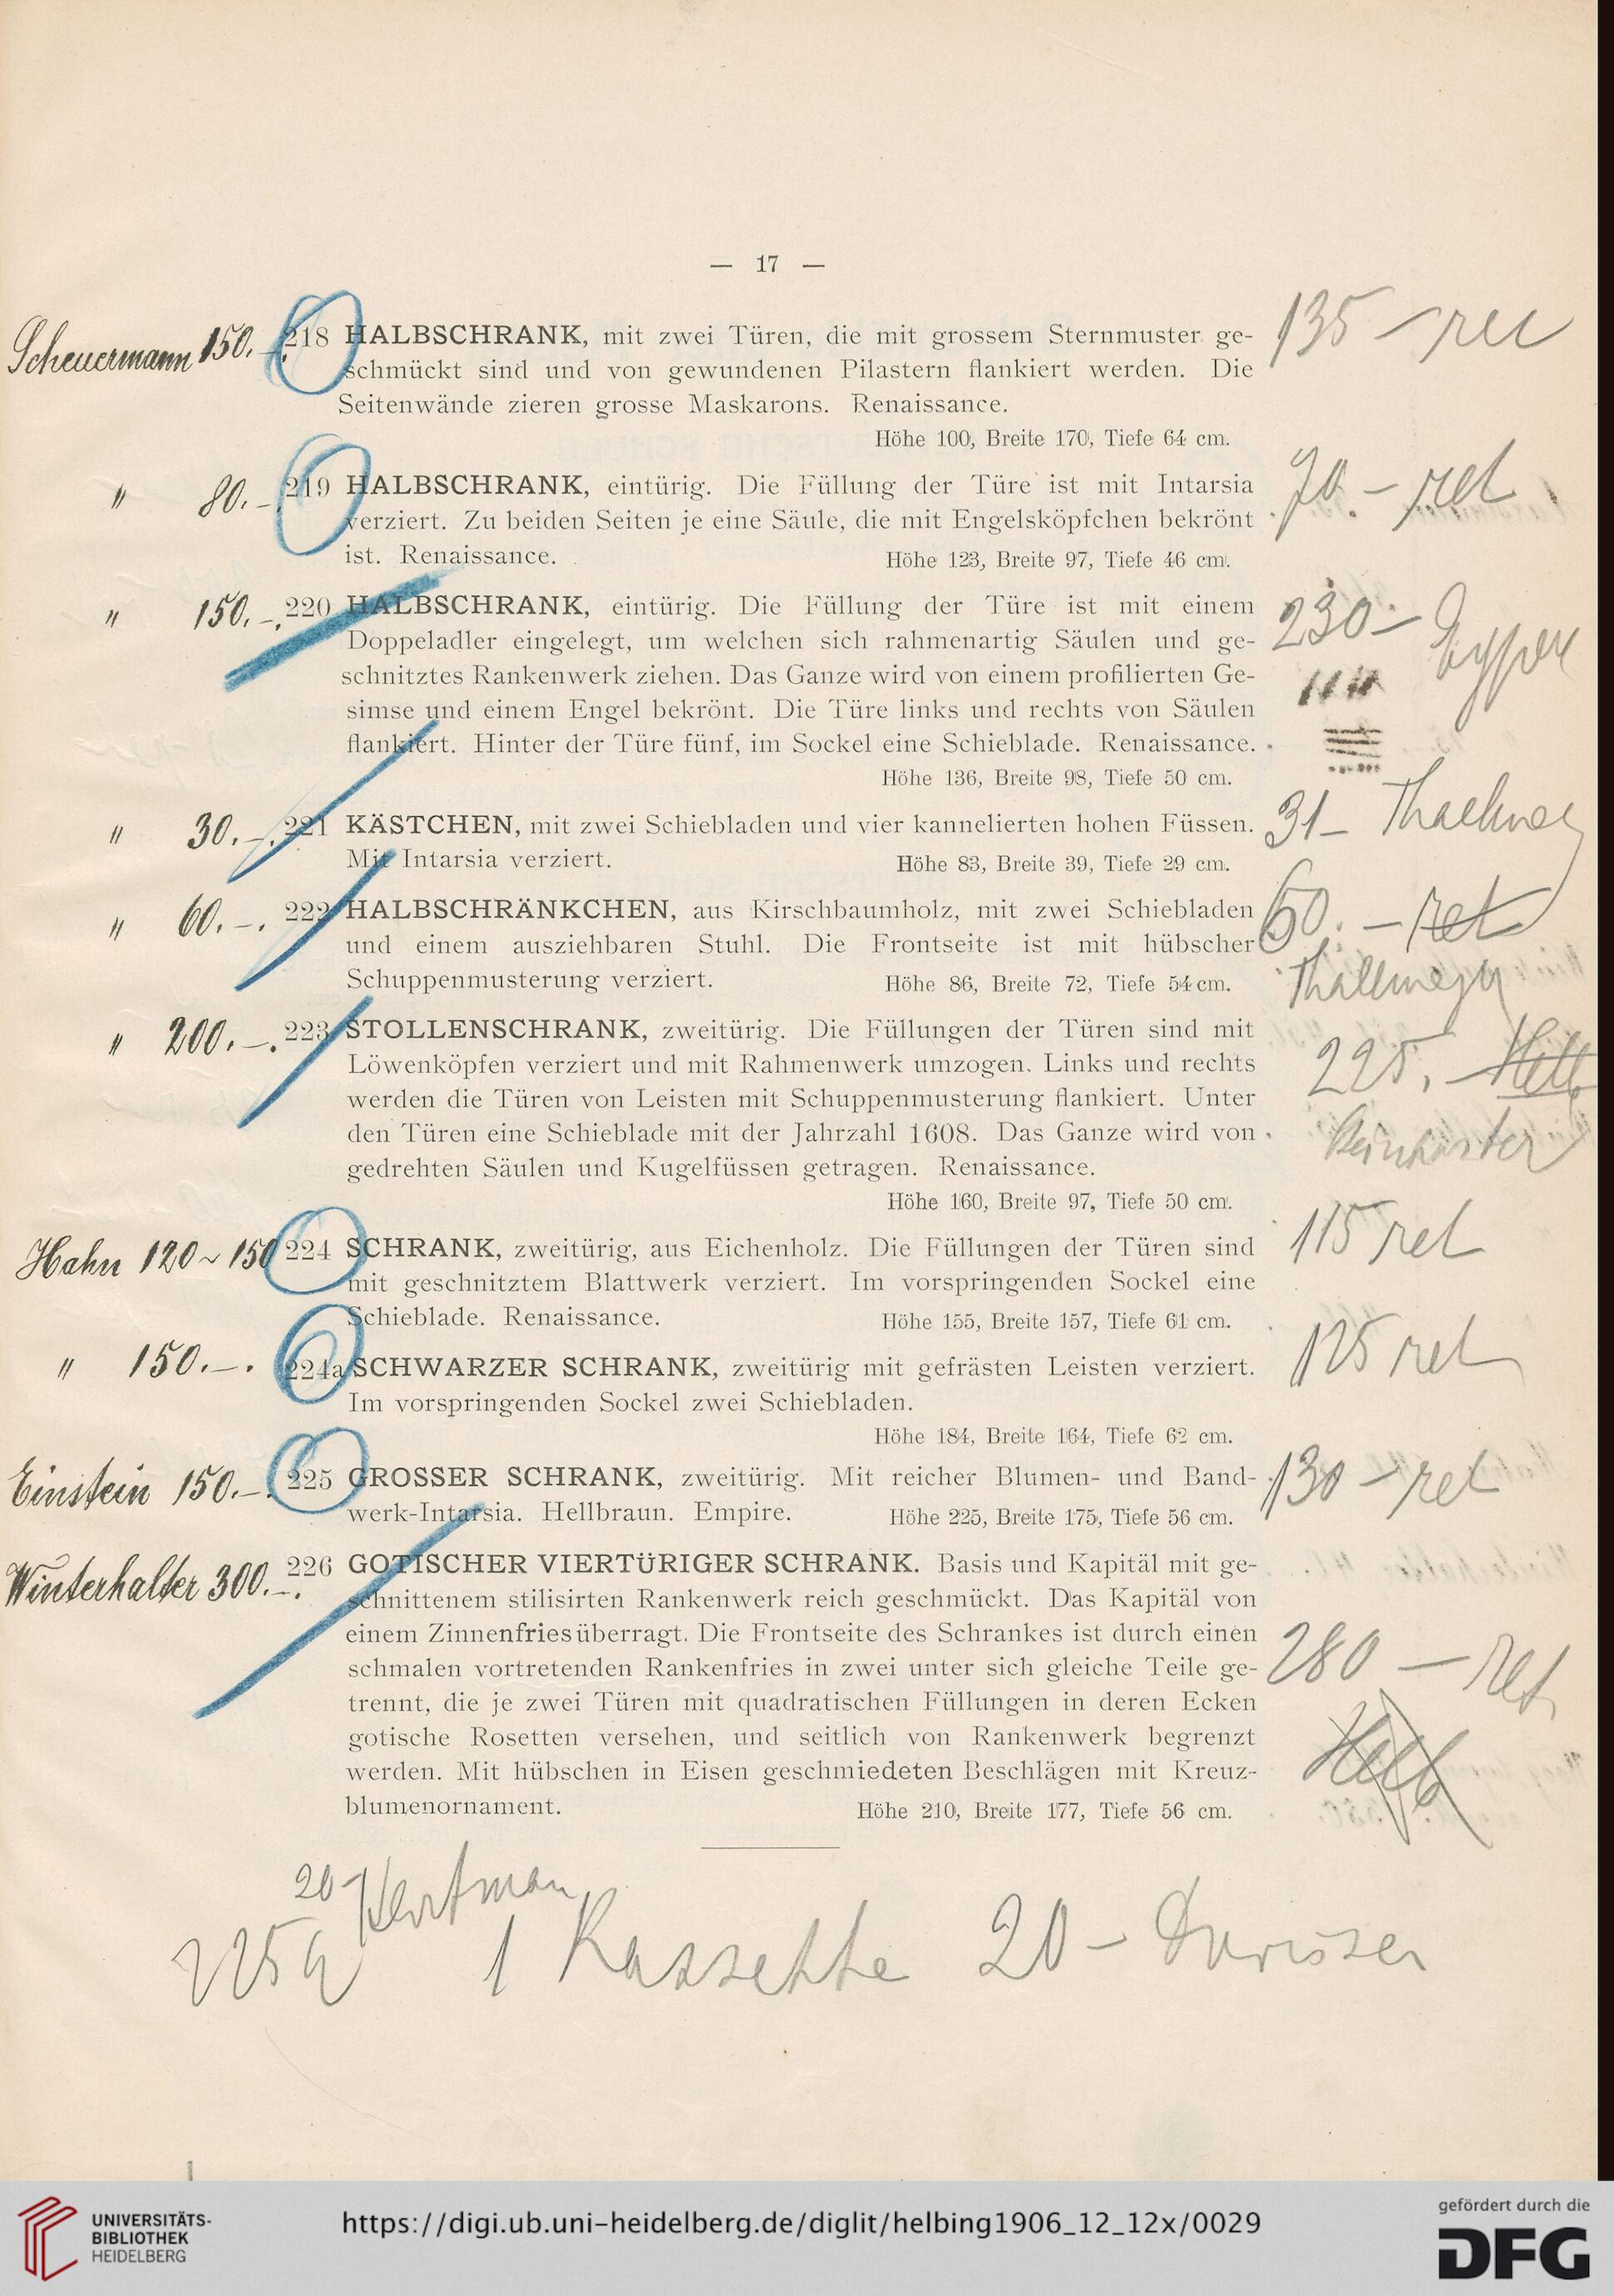 — 17 —
Scheuermann 150.– 218 HALBSCHRANK, mit zwei Türen, die mit grossem Sternmuster ge- 135 –
schmückt sind und von gewundenen Pilastern flankiert werden. Die
Seitenwände zieren grosse Maskarons. Renaissance.
Höhe 100, Breite 170, Tiefe 64 cm.
" 80.– 219 HALBSCHRANK, eintürig. Die Füllung der Türe ist mit Intarsia 70.– ret
verziert. Zu beiden Seiten je eine Säule, die mit Engelsköpfchen bekrönt
ist. Renaissance. Höhe 123, Breite 97, Tiefe 46 cm.
" 150.–. 220 HALBSCHRANK, eintürig. Die Füllung der Türe ist mit einem 230.–
Doppeladler eingelegt, um welchen sich rahmenartig Säulen und ge-
schnitztes Rankenwerk ziehen. Das Ganze wird von einem profilierten Ge-
simse und einem Engel bekrönt. Die Türe links und rechts von Säulen
flankiert. Hinter der Türe fünf, im Sockel eine Schieblade. Renaissance.
Höhe 136, Breite 98, Tiefe 50 cm.
" 30.–. 221 KÄSTCHEN, mit zwei Schiebladen und vier kannelierten hohen Füssen. 31–
Mit Intarsia verziert. Höhe 83, Breite 39, Tiefe 29 cm.
" 60.–. 222 HALBSCHRÄNKCHEN, aus Kirschbaumholz, mit zwei Schiebladen 60.– ret
und einem ausziehbaren Stuhl. Die Frontseite ist mit hübscher
Schuppenmusterung verziert. Höhe 86, Breite 72, Tiefe 54 cm. Thallmeyer
" 200.–. 223 STOLLENSCHRANK, zweitürig. Die Füllungen der Türen sind mit
Löwenköpfen verziert und mit Rahmenwerk umzogen. Links und rechts 225.– Helb
werden die Türen von Leisten mit Schuppenmusterung flankiert. Unter
den Türen eine Schieblade mit der Jahrzahl 1608. Das Ganze wird von
gedrehten Säulen und Kugelfüssen getragen. Renaissance.
Höhe 160, Breite 97, Tiefe 50 cm.
Hahn 120 ~ 150 224 SCHRANK, zweitürig, aus Eichenholz. Die Füllungen der Türen sind 115 ret
mit geschnitztem Blattwerk verziert. Im vorspringenden Sockel eine
Schieblade. Renaissance. Höhe 155, Breite 157, Tiefe 61 cm.
" 150.–. 224a SCHWARZER SCHRANK, zweitürig mit gefrästen Leisten verziert. 125 ret
Im vorspringenden Sockel zwei Schiebladen.
Höhe 184, Breite 164, Tiefe 62 cm.
Einstein 150.–. 225 GROSSER SCHRANK, zweitürig. Mit reicher Blumen- und Band- 130 – ret
werk-Intarsia. Hellbraun. Empire. Höhe 225, Breite 175, Tiefe 56 cm.
Winterhalter 300.–. 226 GOTISCHER VIERTÜRIGER SCHRANK. Basis und Kapitäl mit ge-
schnittenem stilisirten Rankenwerk reich geschmückt. Das Kapitäl von
einem Zinnenfries überragt. Die Frontseite des Schrankes ist durch einen
schmalen vortretenden Rankenfries in zwei unter sich gleiche Teile ge- 280 – ret.
trennt, die je zwei Türen mit quadratischen Füllungen in deren Ecken
gotische Rosetten versehen, und seitlich von Rankenwerk begrenzt
werden. Mit hübschen in Eisen geschmiedeten Beschlägen mit Kreuz- Helb
blumenornament. Höhe 210, Breite 177, Tiefe 56 cm.
20–
225a 1 Kassette 20 –
UNIVERSITÄTS-
BIBLIOTHEK
HEIDELBERG
https://digi.ub.uni-heidelberg.de/diglit/helbing1906_12_12x/0029
gefördert durch die
DFG